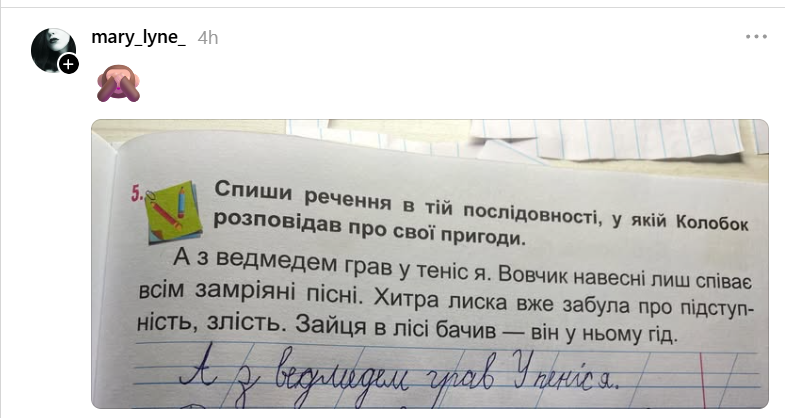 mary_lyne_ 4h
5.
Спиши речення в тій послідовності, у якій Колобок
розповідав про свої пригоди.
А з ведмедем грав у теніс я. Вовчик навесні лиш співає
всім замріяні пісні. Хитра лиска вже забула про підступ-
ність, злість. Зайця в лісі бачив — він у ньому гід.
А з ведмедем грав У теніс я.